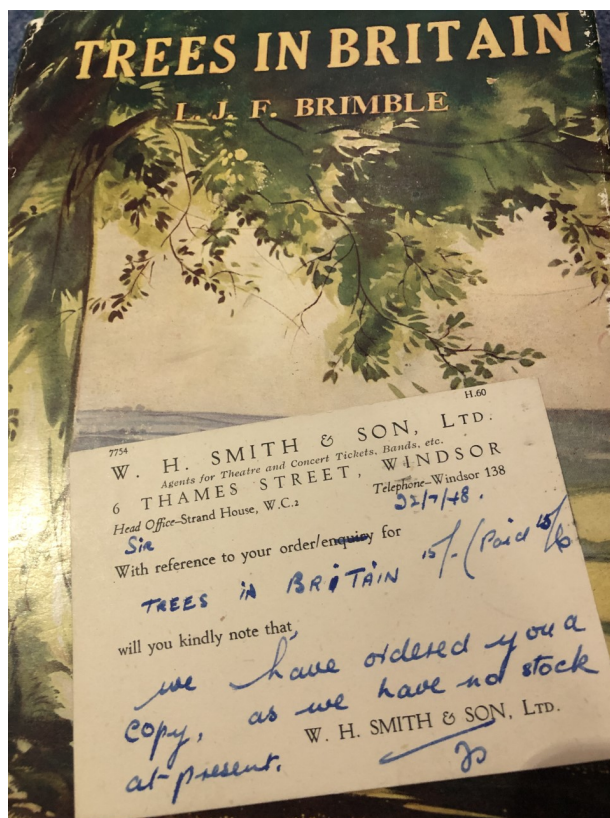 TREES IN BRITAIN
L. J. F. BRIMBLE
H.60
7754
W. H. SMITH & SON, LTD.
Agents for Theatre and Concert Tickets, Bands, etc.
6 THAMES STREET, WINDSOR
Head Office–Strand House, W.C.2 Telephone–Windsor 138
22/7/48.
Sir
With reference to your order/enquiry for
TREES IN BRITAIN 15/- (Paid 15/6
will you kindly note that
we have ordered you a
copy, as we have no stock
at present.
W. H. SMITH & SON, LTD.